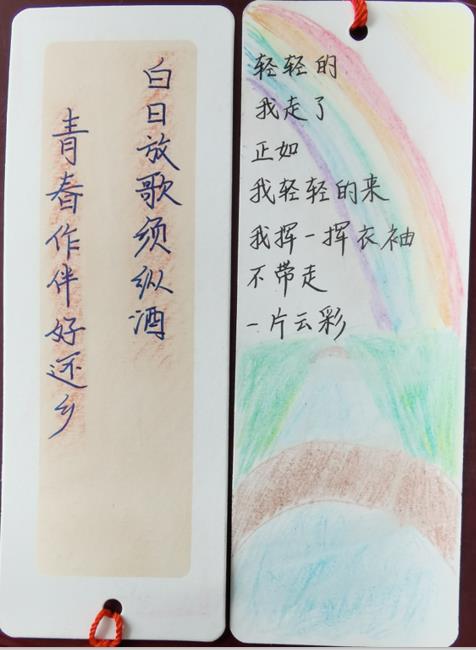 白日放歌须纵酒
青春作伴好还乡
轻轻的
我走了
正如
我轻轻的来
我挥一挥衣袖
不带走
一片云彩